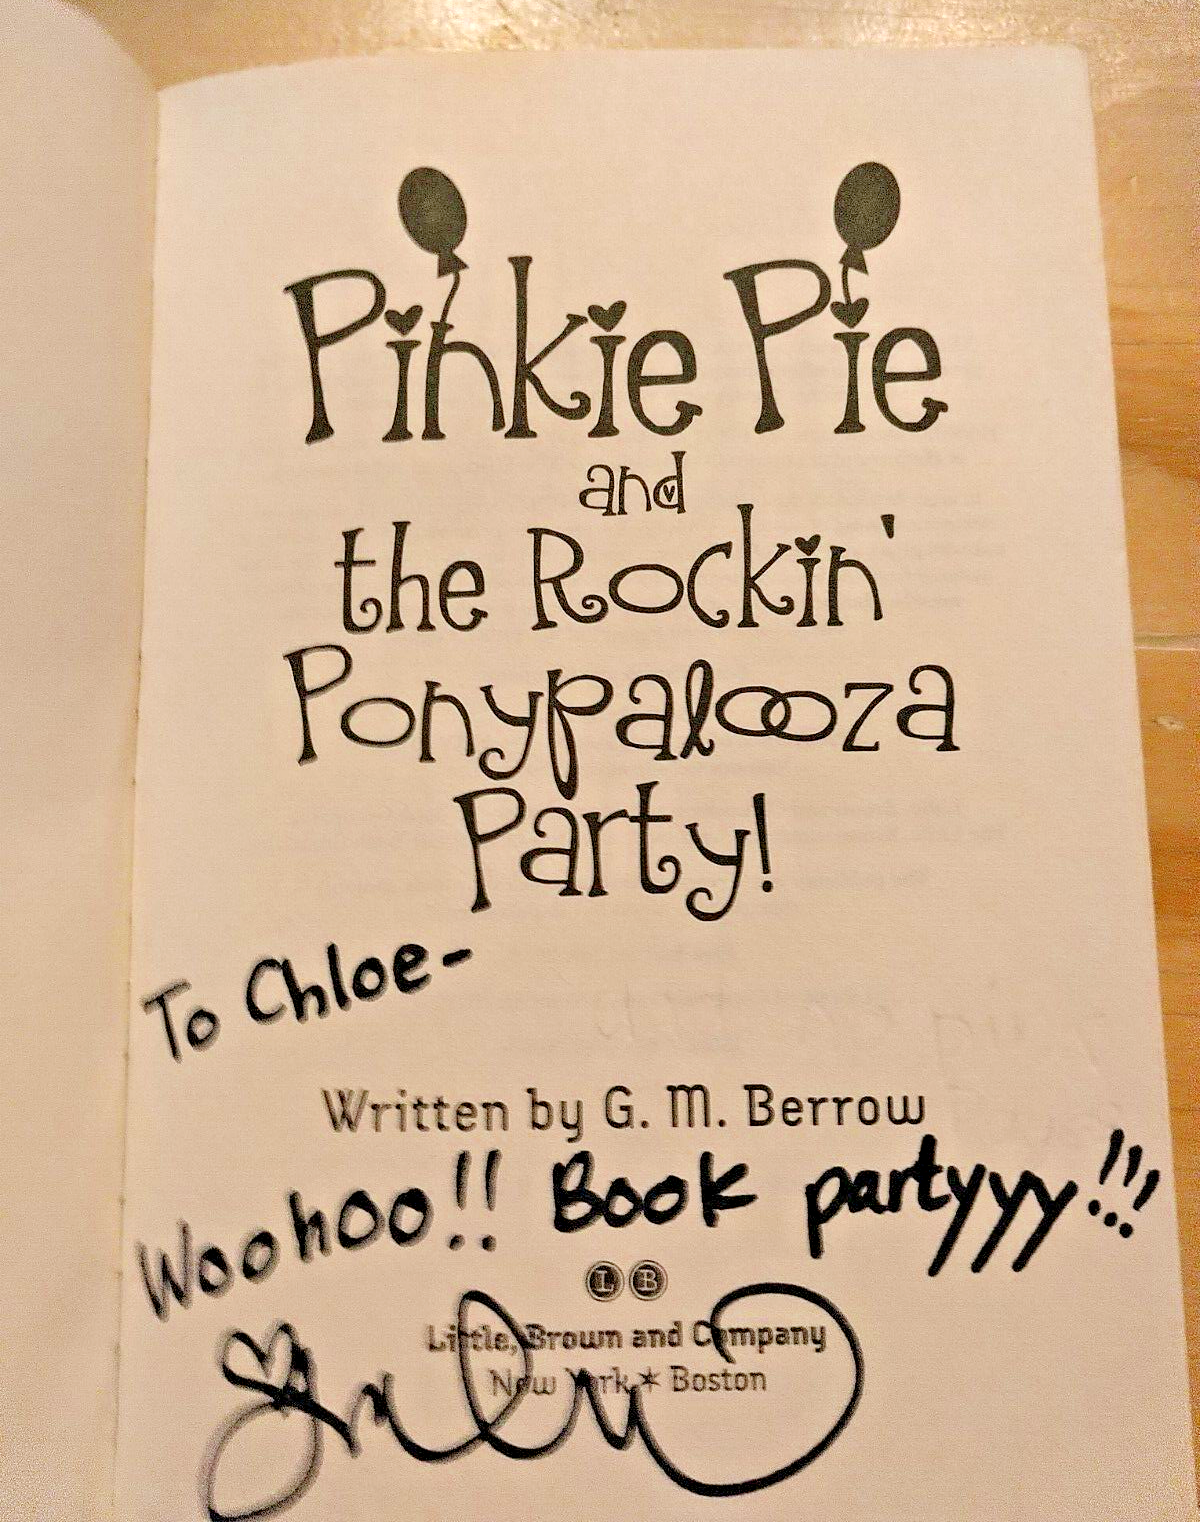 Pinkie Pie
and
the Rockin'
Ponypalooza
Party!
To Chloe-
Written by G. M. Berrow
Woohoo!! Book partyyy!!!
L B
Little, Brown and Company
New York ✶ Boston